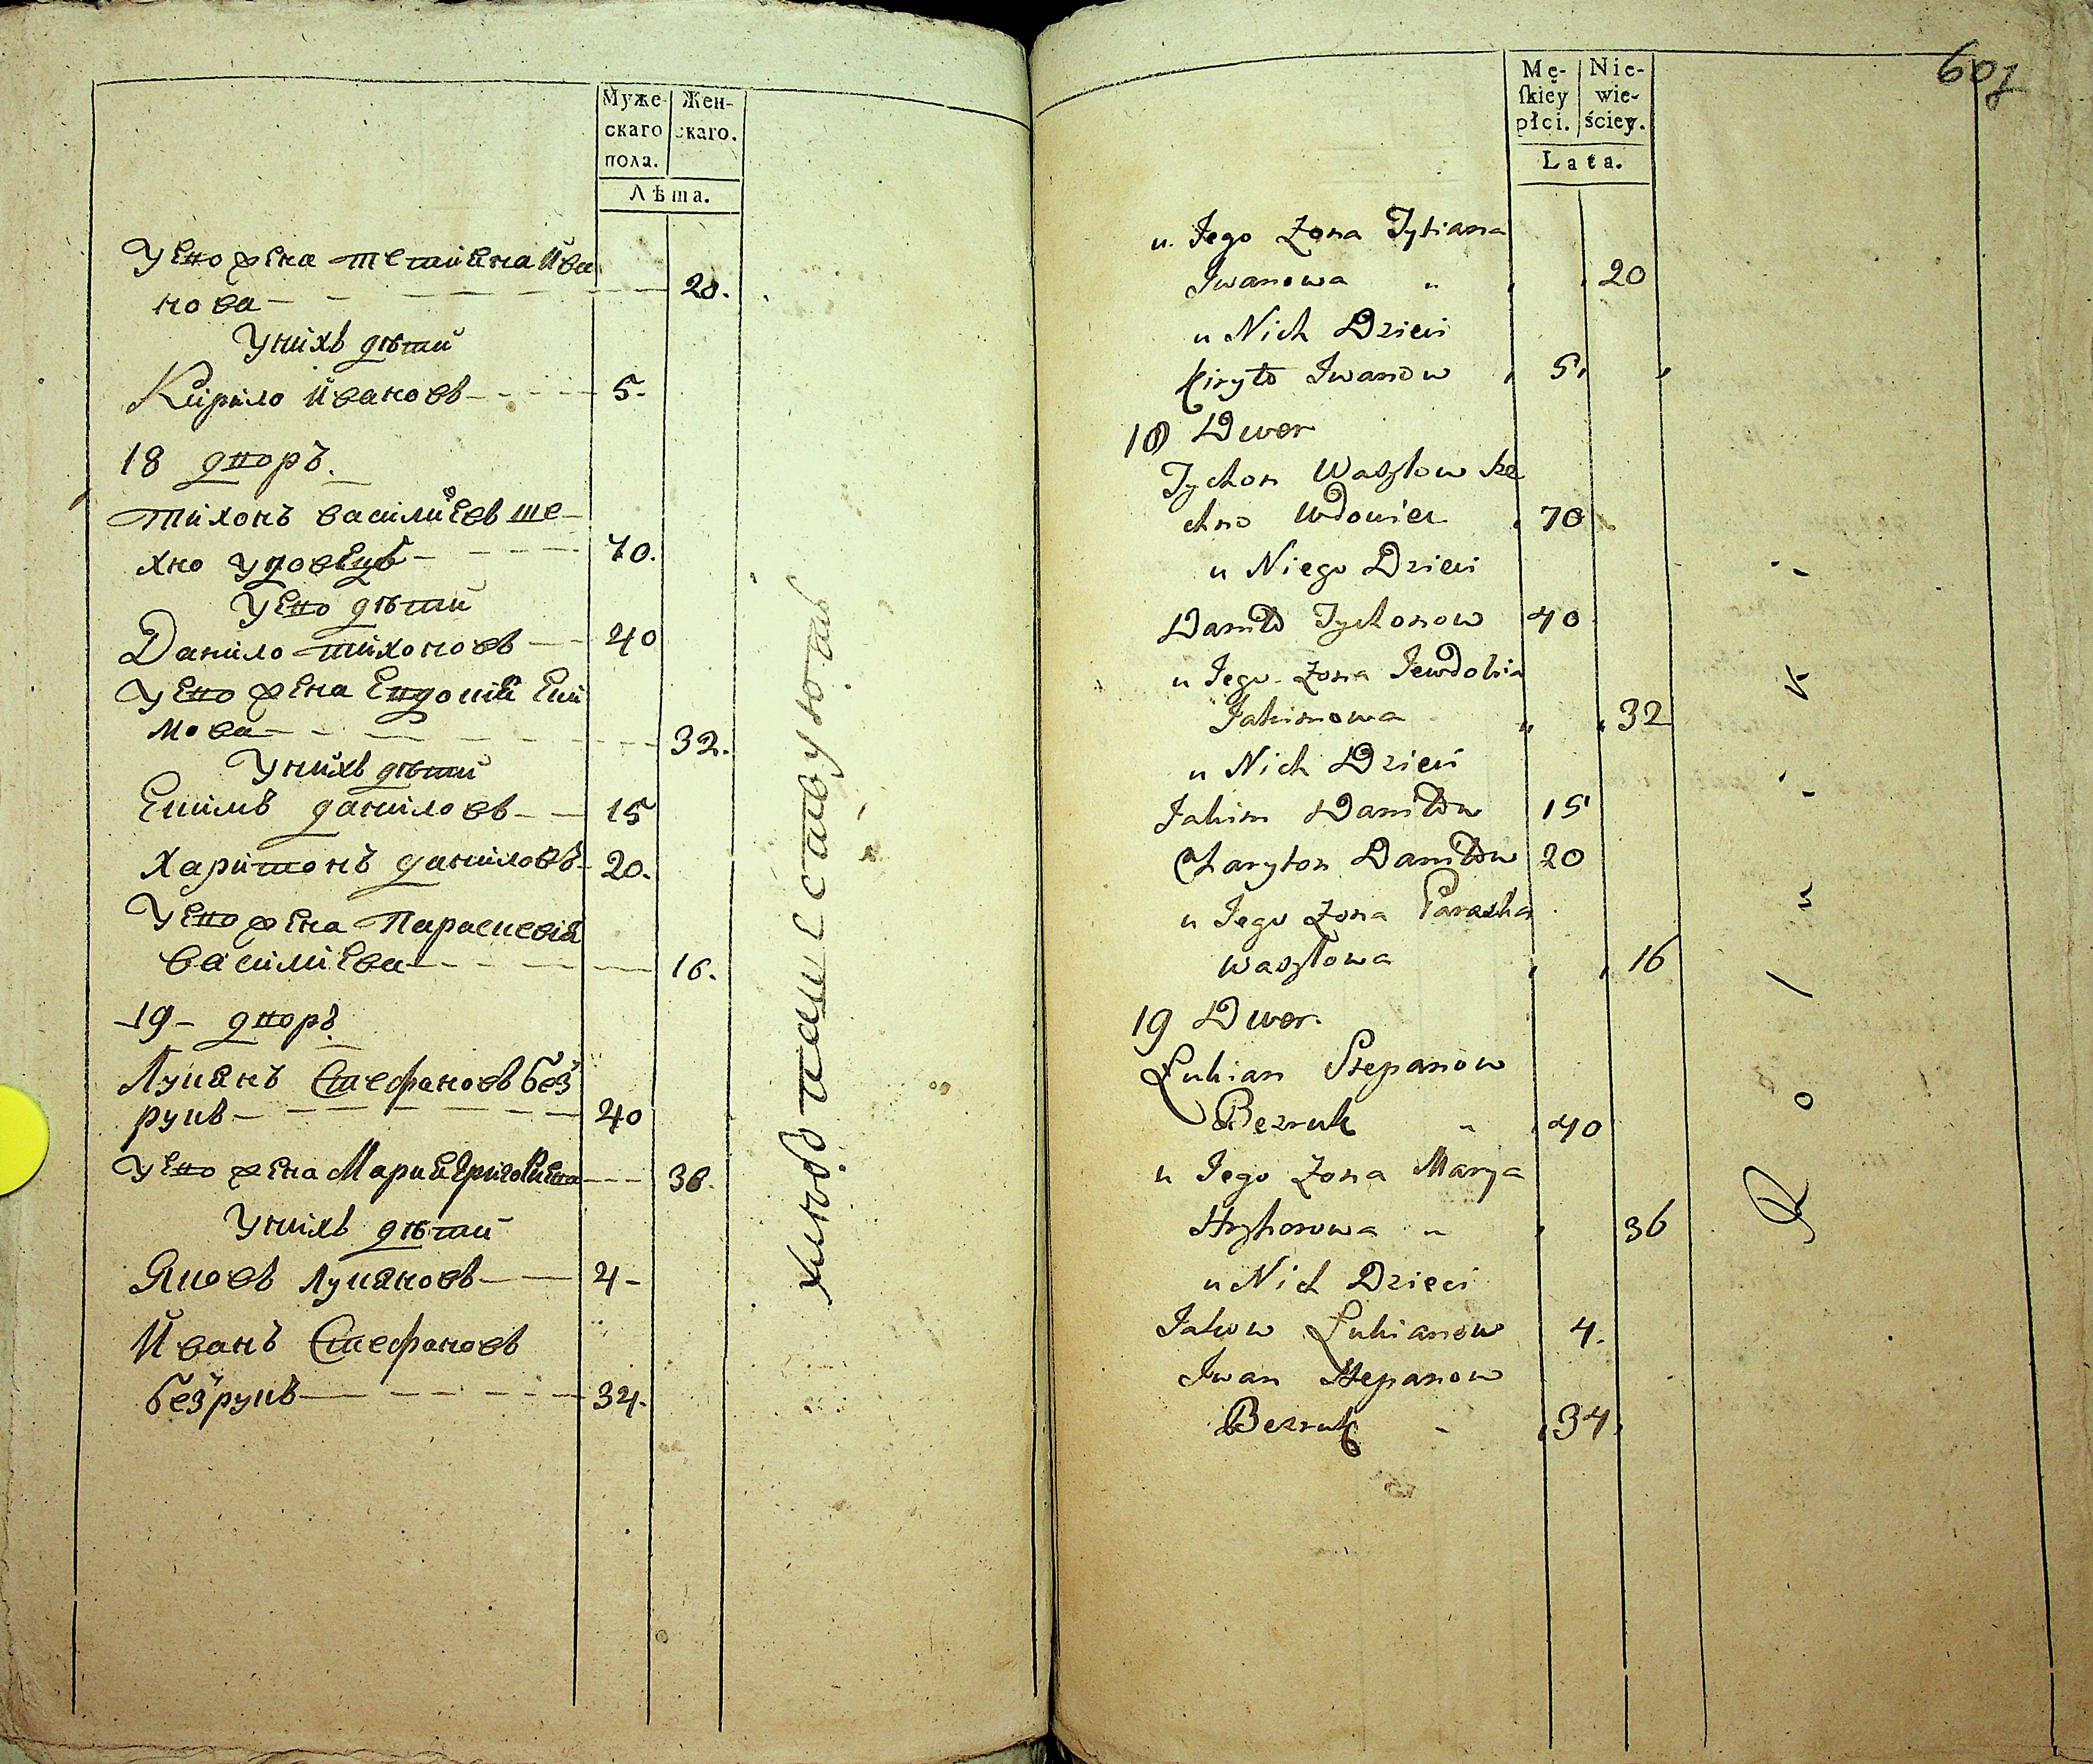 Муже-
скаго
пола.
Жен-
скаго.
Лѣта.
У Его жена Татияна Ива
нова 20.
У нихъ дѣти
Кирило Ивановъ 5.
18 дворъ.
Тихонъ василиевъ ше
хно удовецъ 70.
У Его дѣти
Данило тихоновъ 40
У Его жена Евдокия Еки
мова 32.
У нихъ дѣти
Екимъ даниловъ 15
Харитонъ даниловъ 20.
У Его жена Параскевия
василиева 16.
19 дворъ
Лукянъ Стефановъ без
рукъ 40
У Его жена Мария Григориева 36.
У нихъ дѣти
Яковъ Лукяновъ 4
Иванъ Стефановъ
безрукъ 34.
607
Mę-
ſkiey
płci.
Nie-
wie-
ściey.
Lata.
u Jego Zona Tytiana
Iwanowa 20
u Nich Dzieci
Kiryło Iwanow 5
18 Dwor
Tychon Wasylow Sze
chno Wdowiec 70
u Niego Dzieci
Daniło Tychonow 40
u Jego Zona Jewdokia
Jakimowa 32
u Nich Dzieci
Jakim Daniłow 15
Charyton Daniłow 20
u Jego Zona Paraska
Wasylowa 16
19 Dwor
Łukian Stepanow
Bezruk 40
u Jego Zona Marya
Hryhorowa 36
u Nich Dzieci
Jakow Łukianow 4.
Iwan Stepanow
Bezruk 34